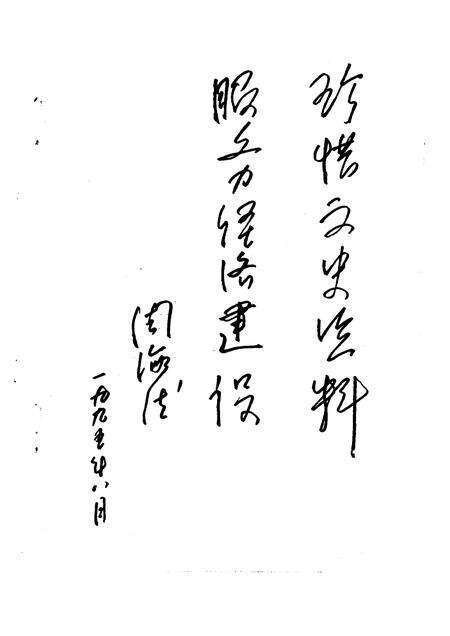 珍惜文史资料
服务经济建设
周海
一九九五年八月